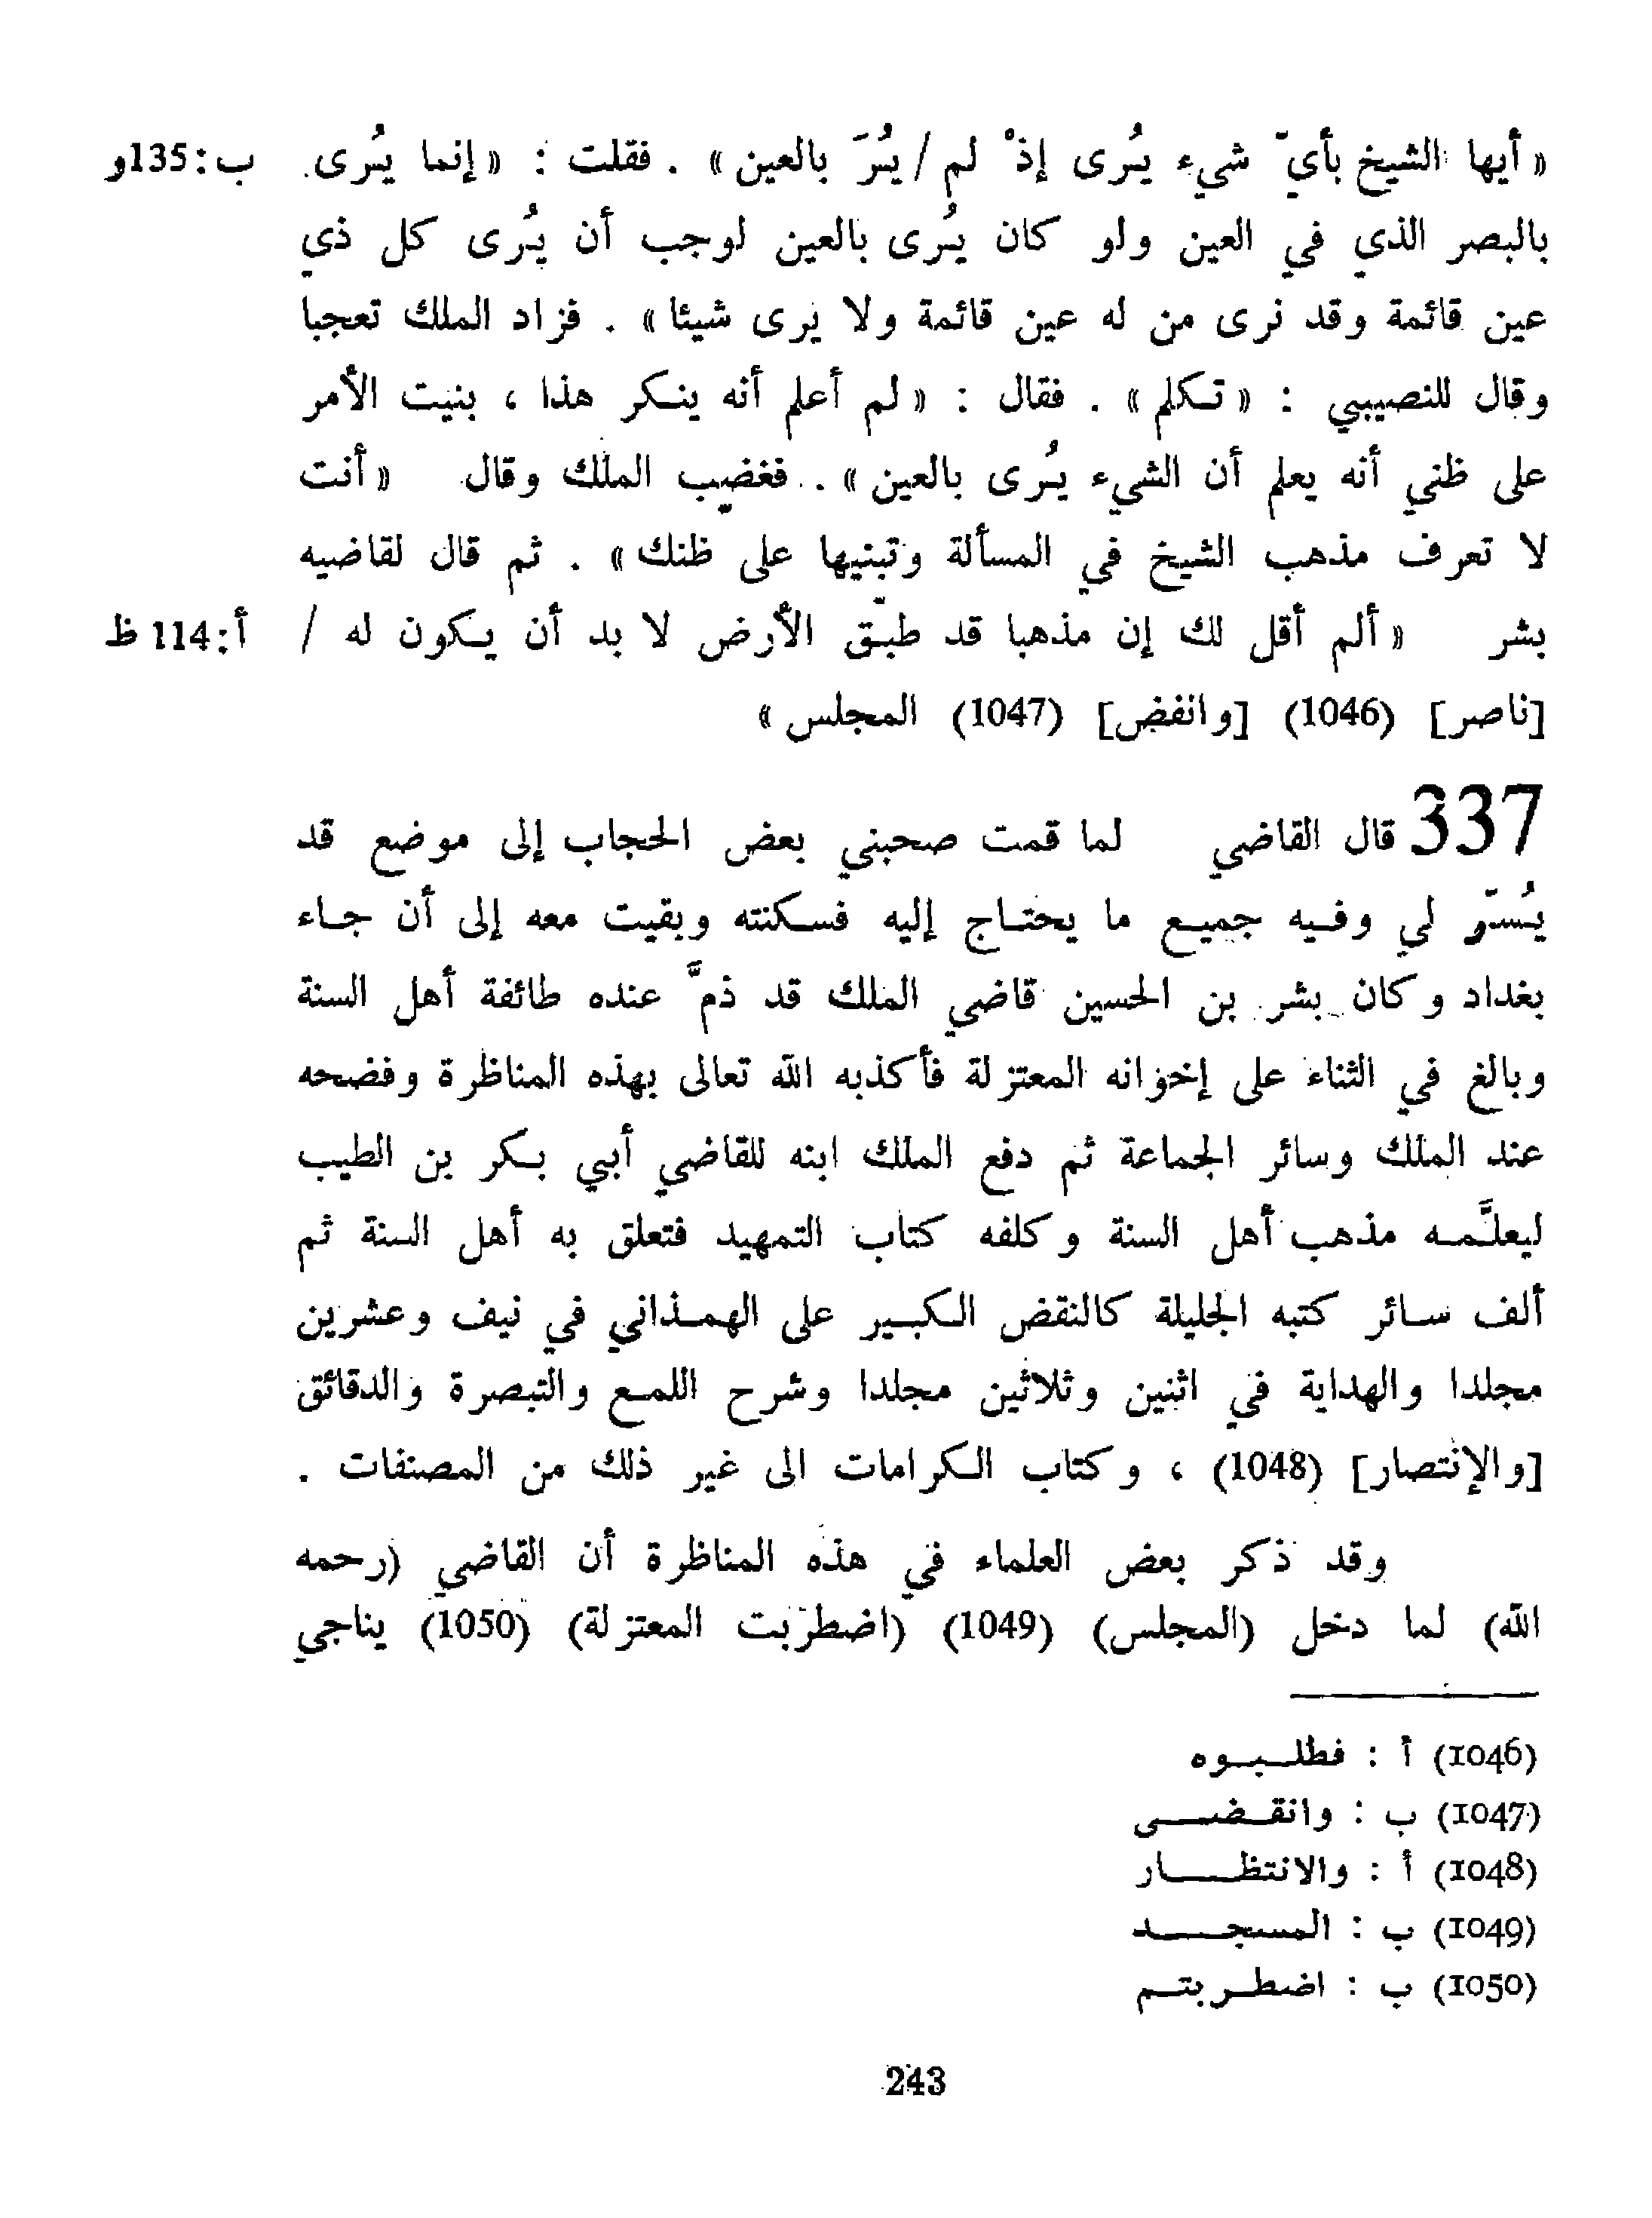 « أيها الشيخ بأيّ شيء يُرى إذْ لم / يُرَ بالعين » . فقلت : « إنما يُرى ب:135و
بالبصر الذي في العين ولو كان يُرى بالعين لوجب أن يُرى كل ذي
عين قائمة وقد نرى من له عين قائمة ولا يرى شيئا » . فزاد الملك تعجبا
وقال للنصيبي : « تكلم » . فقال : « لم أعلم أنه ينكر هذا ، بنيت الأمر
على ظني أنه يعلم أن الشيء يُرى بالعين » . فغضب الملك وقال « أنت
لا تعرف مذهب الشيخ في المسألة وتبنيها على ظنك » . ثم قال لقاضيه
بشر « ألم أقل لك إن مذهبا قد طبّق الأرض لا بد أن يكون له / أ:114ظ
[ناصر] (1046) [وانفض] (1047) المجلس »
337 قال القاضي لما قمت صحبني بعض الحجاب إلى موضع قد
يُسّر لي وفيه جميع ما يحتاج إليه فسكنته وبقيت معه إلى أن جاء
بغداد وكان بشر بن الحسين قاضي الملك قد ذمّ عنده طائفة أهل السنة
وبالغ في الثناء على إخوانه المعتزلة فأكذبه الله تعالى بهذه المناظرة وفضحه
عند الملك وسائر الجماعة ثم دفع الملك ابنه للقاضي أبي بكر بن الطيب
ليعلَّمه مذهب أهل السنة وكلفه كتاب التمهيد فتعلق به أهل السنة ثم
ألف سائر كتبه الجليلة كالنقض الكبير على الهمذاني في نيف وعشرين
مجلدا والهداية في اثنين وثلاثين مجلدا وشرح اللمع والتبصرة والدقائق
[والإنتصار] (1048) ، وكتاب الكرامات الى غير ذلك من المصنفات .
وقد ذكر بعض العلماء في هذه المناظرة أن القاضي (رحمه
الله) لما دخل (المجلس) (1049) (اضطربت المعتزلة) (1050) يناجي
(1046) أ : فطلبوه
(1047) ب : وانقضى
(1048) أ : والانتظار
(1049) ب : المسجد
(1050) ب : اضطربتم
243